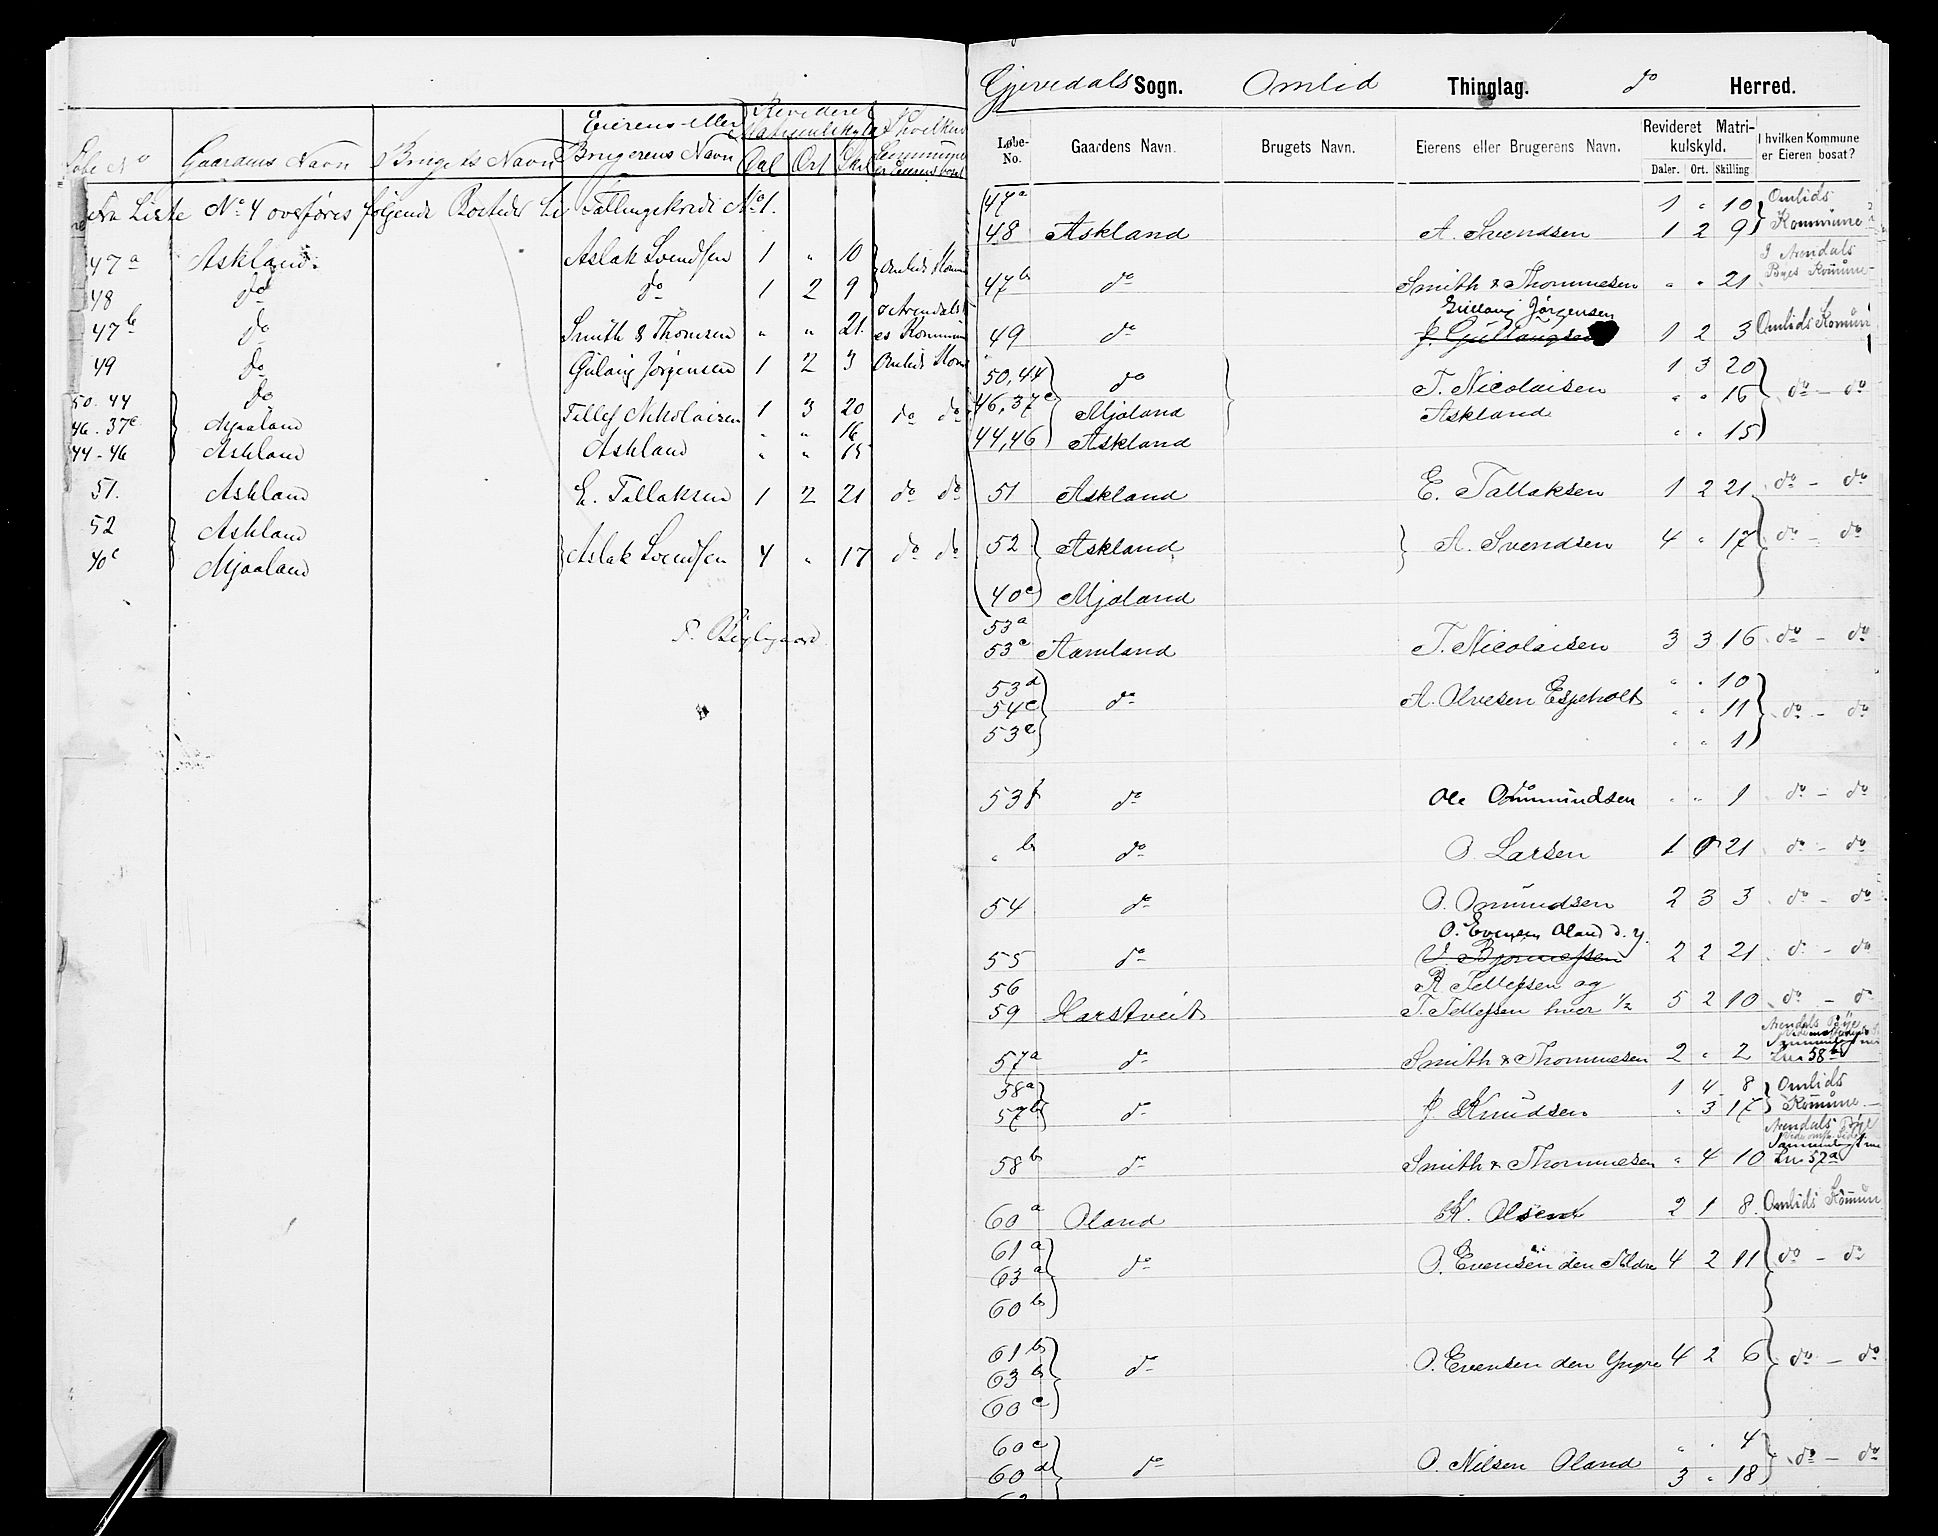 Eierens eller Revideret I hvilken
Løbe No Gaardens Navn Brugets Navn Brugerens Navn Matrikulskyld Kommune
Dal Ort Skil er Eieren bosat
Fra Liste No 4 overføres følgende Bosteder til Tællingskreds No 1.
47a Askland. Aslak Svendsen 1 " 10 Omlids Komm
48 do do 1 2 9
47b do Smith & Thomsen " " 21 Arendals
es Kommun
49 do Gulaug Jørgensen 1 2 3 Omlids Kom
50. 44 do Tellef Nikolaisen 1 3 20 do do
46. 37c Mjaaland " " 16
44-46 Askland Askland " " 15
51. Askland E. Tallaksen 1 2 21 do do
52 Askland
40c Mjaaland Aslak Svendsen 4 " 17 do do
Gjøvdals Sogn. Omlid Thinglag. do Herred.
Løbe-No. Gaardens Navn. Brugets Navn. Eierens eller Brugerens Navn. Revideret Matrikulskyld. I hvilken Kommune er Eieren bosat?
Daler. Ort. Skilling
47a 1 " 10 Omlids
48 Askland A. Svendsen 1 2 9 Kommune
I Arendals
47b do Smith & Thommesen " " 21 Byes Kommune
Gullaug Jørgensen
49 do J. Gullaugsen 1 2 3 Omlids Kommun
50, 44 do T. Nicolaisen 1 3 20 do - do
46, 37c Mjaland Askland " " 16
44, 46 Askland " " 15
51 Askland E. Tallaksen 1 2 21 do - do
52 Askland A. Svendsen 4 " 17 do - do
40c Mjaland
53a
53c Aamland T. Nicolaisen 3 3 16 do - do
53d " " 10
54c do A. Olvesen Espeholt " " 11 do - do
53e " " 1
53f do Ole Ommundsen " " 1 do - do
" b do O. Larsen 1 0 21 do - do
54 do O. Omundsen 2 3 3 do - do
O. Evensen Oland d. y.
55 do 2 2 21 do - do
56 R Tellefsen og
59 Harstveit T. Tellefsen hver 1/2 5 2 10 do - do
57a do Smith & Thommesen 2 " 2 Arendals Bye
Lnr 58b
58a 1 4 8 Omlids
57b do J Knudsen " 3 17 Kommune
Arendals Bye
58b do Smith & Thommesen " 4 10 Lnr 57a
60a Oland K. Olsen 2 1 8 Omlids Kommun
61a
63a do O. Evensen den Ældre 4 2 11 do - do
60b
61b
63b do O. Evensen den Yngre 4 2 6 do - do
60c
60c " " 4
60d do O. Nilsen Oland 3 " 18 do - do